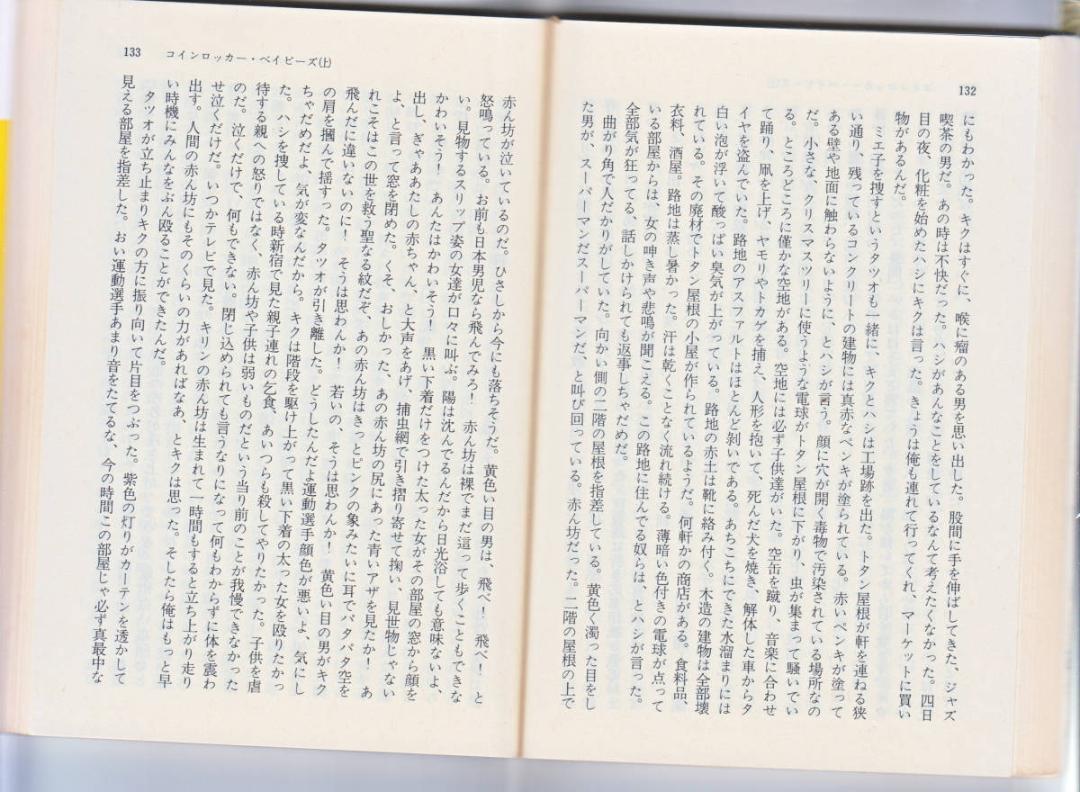 132
にもわかった。キクはすぐに、喉に瘤のある男を思い出した。股間に手を伸ばしてきた、ジャズ
喫茶の男だ。あの時は不快だった。ハシがあんなことをしているなんて考えたくなかった。四日
目の夜、化粧を始めたハシにキクは言った。きょうは俺も連れて行ってくれ、マーケットに買い
物があるんだ。
ミエ子を捜すというタツオも一緒に、キクとハシは工場跡を出た。トタン屋根が軒を連ねる狭
い通り、残っているコンクリートの建物には真赤なペンキが塗られている。赤いペンキが塗って
ある壁や地面に触わらないように、とハシが言う。顔に穴が開く毒物で汚染されている場所なの
だ。小さな、クリスマスツリーに使うような電球がトタン屋根に下がり、虫が集まって騒いでい
る。ところどころに僅かな空地がある。空地には必ず子供達がいた。空缶を蹴り、音楽に合わせ
て踊り、凧を上げ、ヤモリやトカゲを捕え、人形を抱いて、死んだ犬を焼き、解体した車からタ
イヤを盗んでいた。路地のアスファルトはほとんど剝いである。あちこちにできた水溜まりには
白い泡が浮いて酸っぱい臭気が上がっている。路地の赤土は靴に絡み付く。木造の建物は全部壊
れている。その廃材でトタン屋根の小屋が作られているようだ。何軒かの商店がある。食料品、
衣料、酒屋。路地は蒸し暑かった。汗は乾くことなく流れ続ける。薄暗い色付きの電球が点って
いる部屋からは、女の呻き声や悲鳴が聞こえる。この路地に住んでる奴らは、とハシが言った。
全部気が狂ってる、話しかけられても返事しちゃだめだ。
曲がり角で人だかりがしていた。向かい側の二階の屋根を指差している。黄色く濁った目をし
た男が、スーパーマンだスーパーマンだ、と叫び回っている。赤ん坊だった。二階の屋根の上で
133 コインロッカー・ベイビーズ(上)
赤ん坊が泣いているのだ。ひさしから今にも落ちそうだ。黄色い目の男は、飛べ! 飛べ! と
怒鳴っている。お前も日本男児なら飛んでみろ! 赤ん坊は裸でまだ這って歩くこともできな
い。見物するスリップ姿の女達が口々に叫ぶ。陽は沈んでるんだから日光浴しても意味ないよ、
かわいそう! あんたはかわいそう! 黒い下着だけをつけた太った女がその部屋の窓から顔を
出し、ぎゃああたしの赤ちゃん、と大声をあげ、捕虫網で引き摺り寄せて掬い、見世物じゃない
よ、と言って窓を閉めた。くそ、おしかった、あの赤ん坊の尻にあった青いアザを見たか! あ
れこそはこの世を救う聖なる紋だぞ、あの赤ん坊はきっとピンクの象みたいに耳でパタパタ空を
飛んだに違いないのに! そうは思わんか! 若いの、そうは思わんか! 黄色い目の男がキク
の肩を摑んで揺すった。タツオが引き離した。どうしたんだよ運動選手顔色が悪いよ、気にし
ちゃだめだよ、気が変なんだから。キクは階段を駆け上がって黒い下着の太った女を殴りたかっ
た。ハシを捜している時新宿で見た親子連れの乞食、あいつらも殺してやりたかった。子供を虐
待する親への怒りではなく、赤ん坊や子供は弱いものだという当り前のことが我慢できなかった
のだ。泣くだけで、何もできない。閉じ込められても言うなりになって何もわからずに体を震わ
せ泣くだけだ。いつかテレビで見た。キリンの赤ん坊は生まれて一時間もすると立ち上がり走り
出す。人間の赤ん坊にもそのくらいの力があればなあ、とキクは思った。そしたら俺はもっと早
い時機にみんなをぶん殴ることができたんだ。
タツオが立ち止まりキクの方に振り向いて片目をつぶった。紫色の灯りがカーテンを透かして
見える部屋を指差した。おい運動選手あまり音をたてるな、今の時間この部屋じゃ必ず真最中な